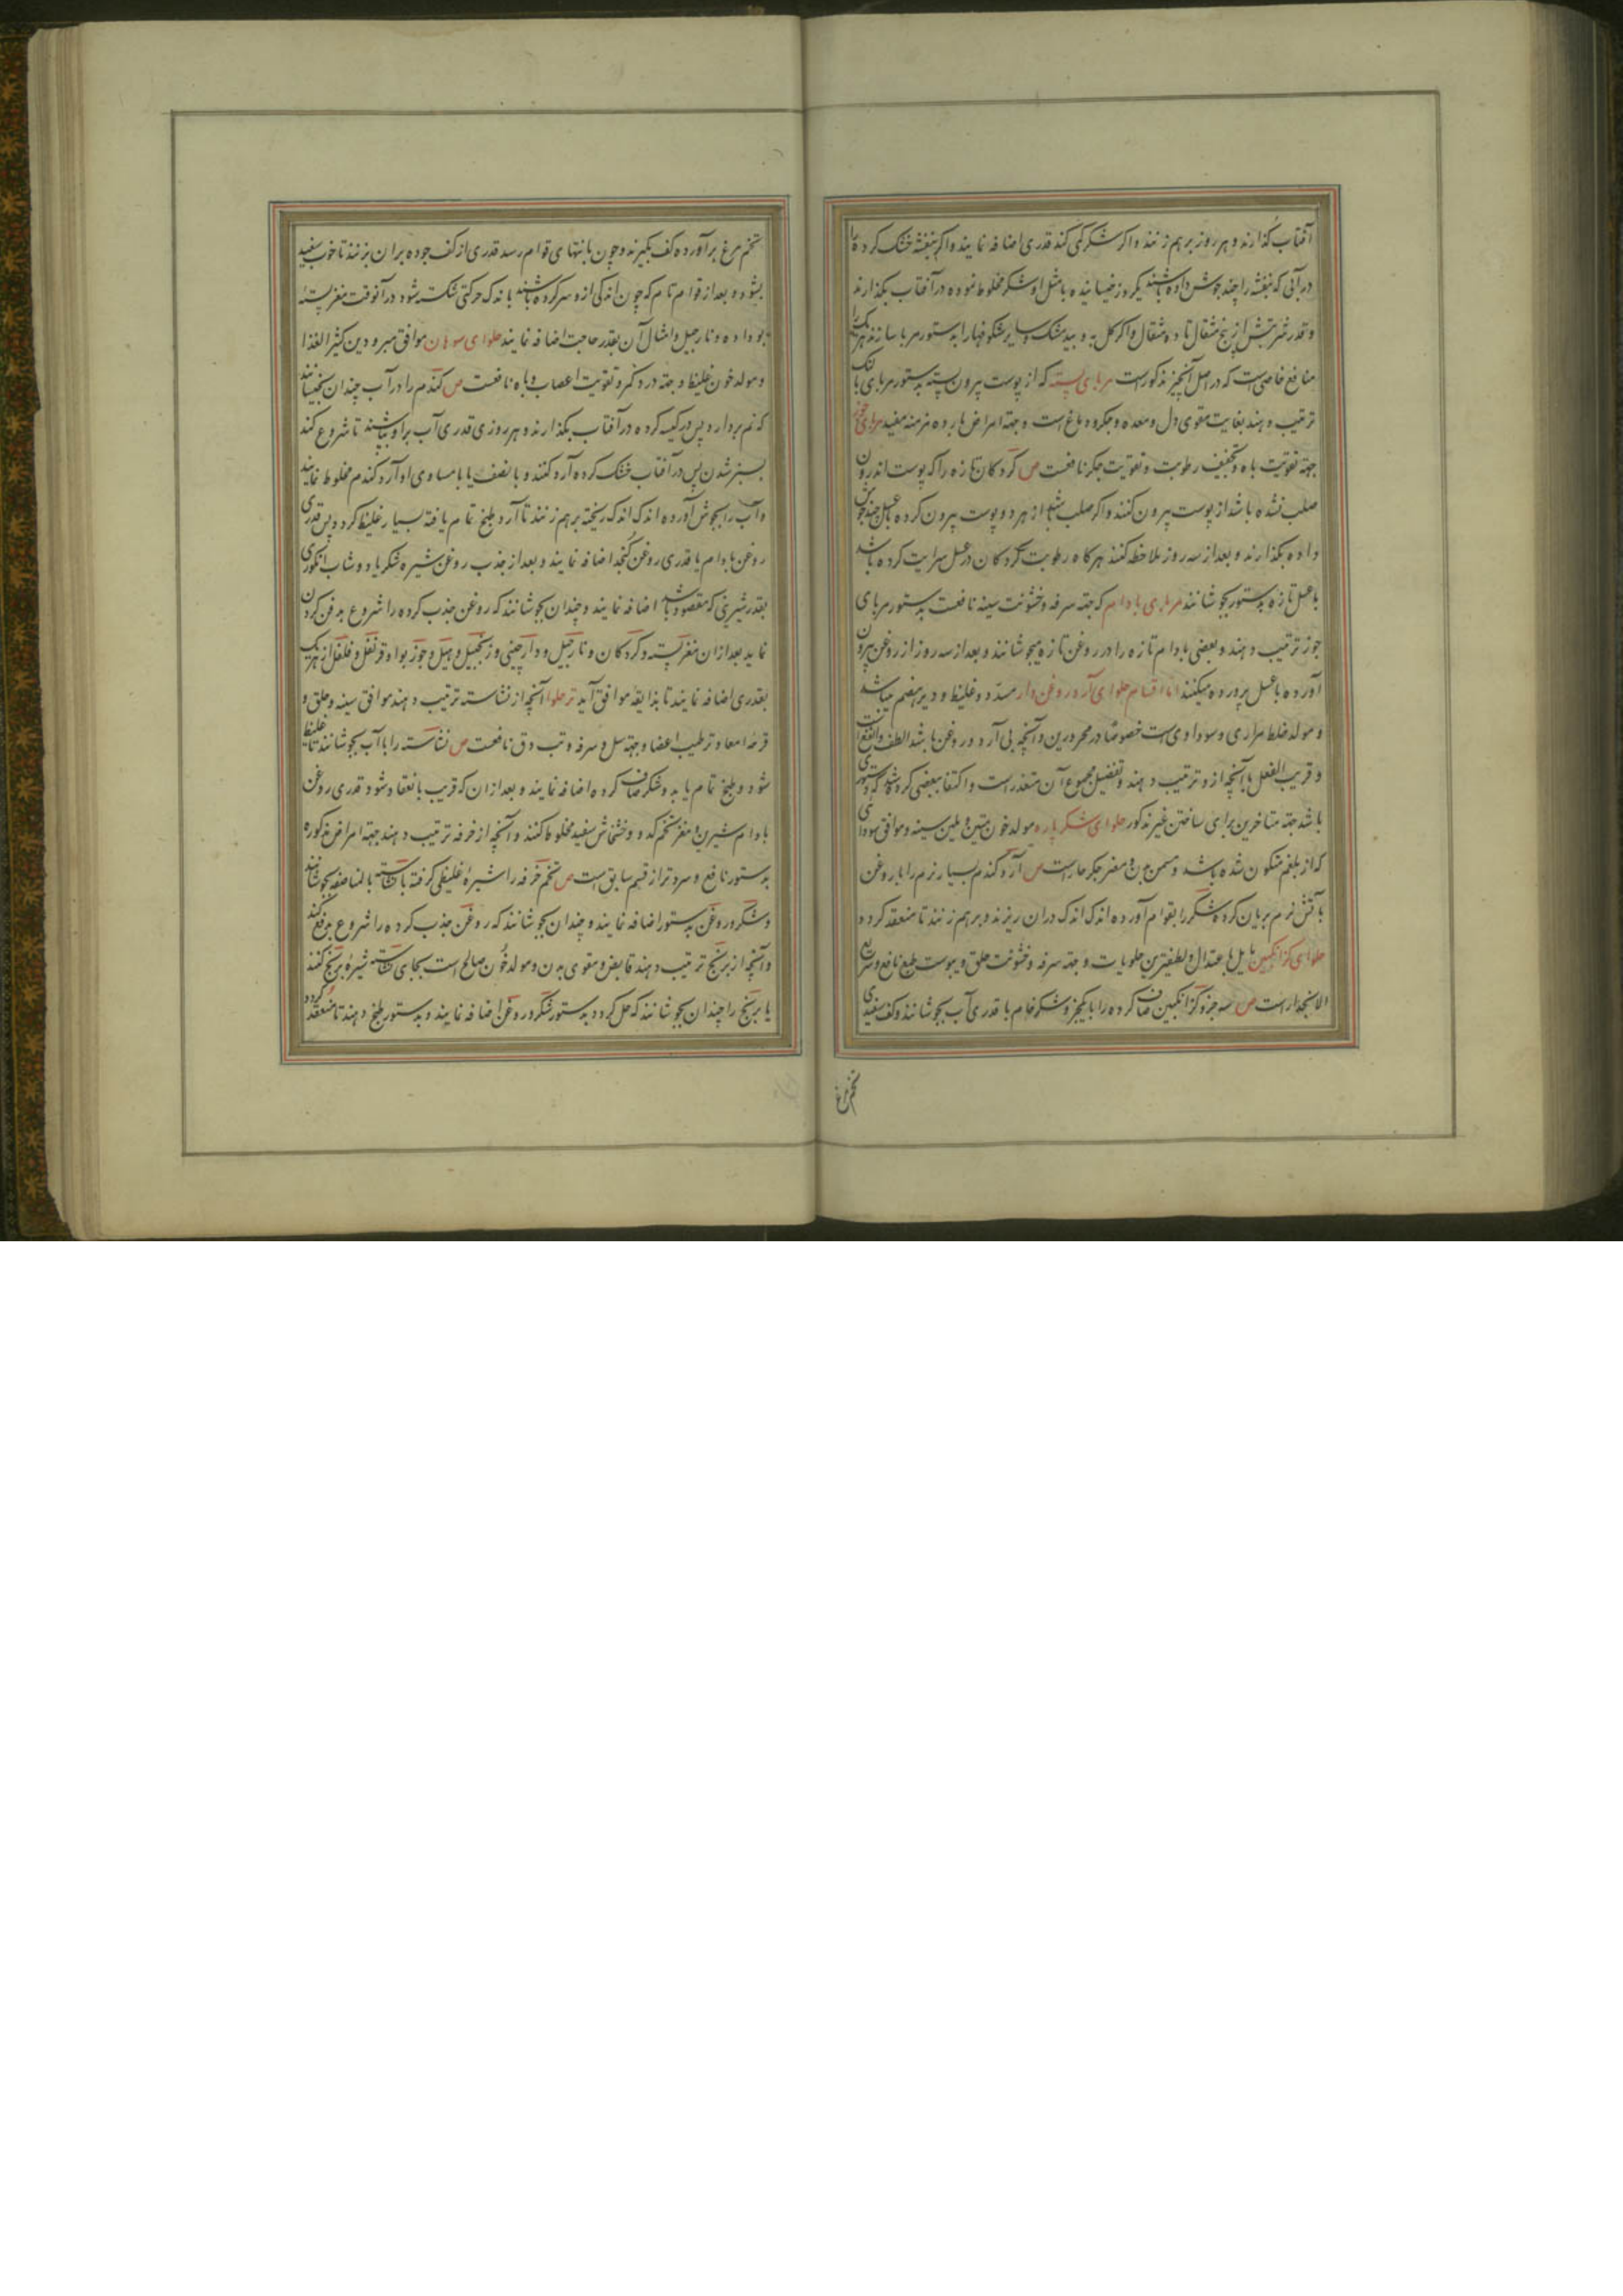 آفتاب گذارند و هر روز بر هم زنند و اگر شکر کمی کند قدری اضافه نمایند و اگر بنفشه خشک کرده را
در آبی که بنفشه را چند جوش داده باشند یکروز خیسانیده با مثل او شکر مخلوط نموده در آفتاب بگذارند
و قدر شربتش از پنج مثقال تا ده مثقال و اگر گل به و بید مشک و سایر شکوفها را بدستور مربا سازند هر یک را
منافع خاصی است که در اصل آنچیز مذکور است مربای پسته که از پوست بیرون پسته بدستور مربای بالنک
ترتیب دهند بغایت مقوی دل و معده و جگر و دماغ است و جهة امراض بارده مزمنه مفید مربای جوز
جهة تقویت باه و تجفیف رطوبت و تقویت جگر نافعست ص گردکان تازه را که پوست اندرون
صلب نشده باشد از پوست بیرون کنند و اگر صلب شده باشد از هر دو پوست بیرون کرده با عسل چند جوش
داده بگذارند و بعد از سه روز ملاحظه کنند هرگاه رطوبت گردکان در عسل سرایت کرده باشد
با عسل تازه بدستور بجوشانند مربای بادام که جهة سرفه و خشونت سینه نافعست بدستور مربای
جوز ترتیب دهند و بعضی بادام تازه را در روغن تازه میجوشانند و بعد از سه روز از روغن بیرون
آورده با عسل پرورده میکنند اما اقسام حلوای آرد و روغن دار مسدد و غلیظ و دیر هضم میباشد
و مولد خلط مراری و سوداوی است خصوصا در محرورین و آنچه بی آرد و روغن باشد الطف و انفع است
و قریب الفعل با آنچه ازو ترتیب دهند و تفصیل مجموع آن متعذر است و اکتفا ببعضی کرده شد که دستوری
باشد جهة متاخرین برای ساختن غیر مذکور حلوای شکر پاره مولد خون متین و ملین سینه و موافق سودای
که از بلغم متکون شده باشد و مسمن بدن و مضر جگر حار است ص آرد گندم بسیار نرم را با روغن
بآتش نرم بریان کرده شکر را بقوام آورده اندک اندک دران ریزند و بر هم زنند تا منعقد گردد
حلوای گزانگبین مایل باعتدال و لطیفترین حلویات و جهة سرفه و خشونت حلق و یبوست طبع نافع و سریع
الانحدار است ص سه جزو گزانگبین صاف کرده را با یکجزو شکر خام با قدری آب بجوشانند و کف سفیدی
تخم مرغ
تخم مرغ برآورده کف بگیرند و چون بانتهای قوام رسد قدری از کف جوده بران بزنند تا خوب سفید
بشود و بعد از قوام تام که چون اندکی ازو سرد کرده باشند باندک حرکتی شکسته شود در آنوقت مغز پسته
بو داده و نارجیل و امثال آن بقدر حاجت اضافه نمایند حلوای سوهان موافق مبرودین کثیر الغذا
و مولد خون غلیظ و جهة درد کمر و تقویت اعصاب و باه نافعست ص گندم را در آب چندان بخیسانند
که نم بردارد پس در کیسه کرده در آفتاب بگذارند و هر روزی قدری آب برو بپاشند تا شروع کند
بسبز شدن پس در آفتاب خشک کرده آرد کنند و با نصف یا با مساوی او آرد گندم مخلوط نمایند
و آب را بجوش آورده اندک اندک ریخته بر هم زنند تا آرد طبخ تمام یافته بسیار غلیظ گردد پس قدری
روغن بادام یا قدری روغن کنجد اضافه نمایند و بعد از جذب روغن شیره شکر یا دوشاب انگوری
بقدر شیرینی که مقصود باشد اضافه نمایند و چندان بجوشانند که روغن جذب کرده را شروع بدفع کردن
نماید بعد از ان مغز پسته و گردکان و نارجیل و دارچینی و زنجبیل و هیل و جوز بوا و قرنفل و فلفل از هر یک
بقدری اضافه نمایند تا بذایقه موافق آید تر حلوا آنچه از نشاسته ترتیب دهند موافق سینه و حلق و
قرحه امعا و ترطیب اعضا و جهة سل و سرفه و تب دق نافعست ص نشاسته را با آب بجوشانند تا غلیظ
شود و طبخ تمام یابد و شکر صاف کرده اضافه نمایند و بعد از ان که قریب بانعقاد شود قدری روغن
بادام شیرین و مغز تخم کدو و خشخاش سفید مخلوط کنند و آنچه از خرفه ترتیب دهند جهة امراض مذکوره
بدستور نافع و سردتر از قسم سابق است ص تخم خرفه را شیره غلیظی گرفته با نشاسته بالمناصفه بجوشانند
و شکر و روغن بدستور اضافه نمایند و چندان بجوشانند که روغن جذب کرده را شروع بدفع کند
و آنچه از برنج ترتیب دهند قابض و مقوی بدن و مولد خون صالح است بجای نشاسته شیره برنج کنند
یا برنج را چندان بجوشانند که حل گردد بدستور شکر و روغن اضافه نمایند و بدستور طبخ دهند تا منعقد گردد